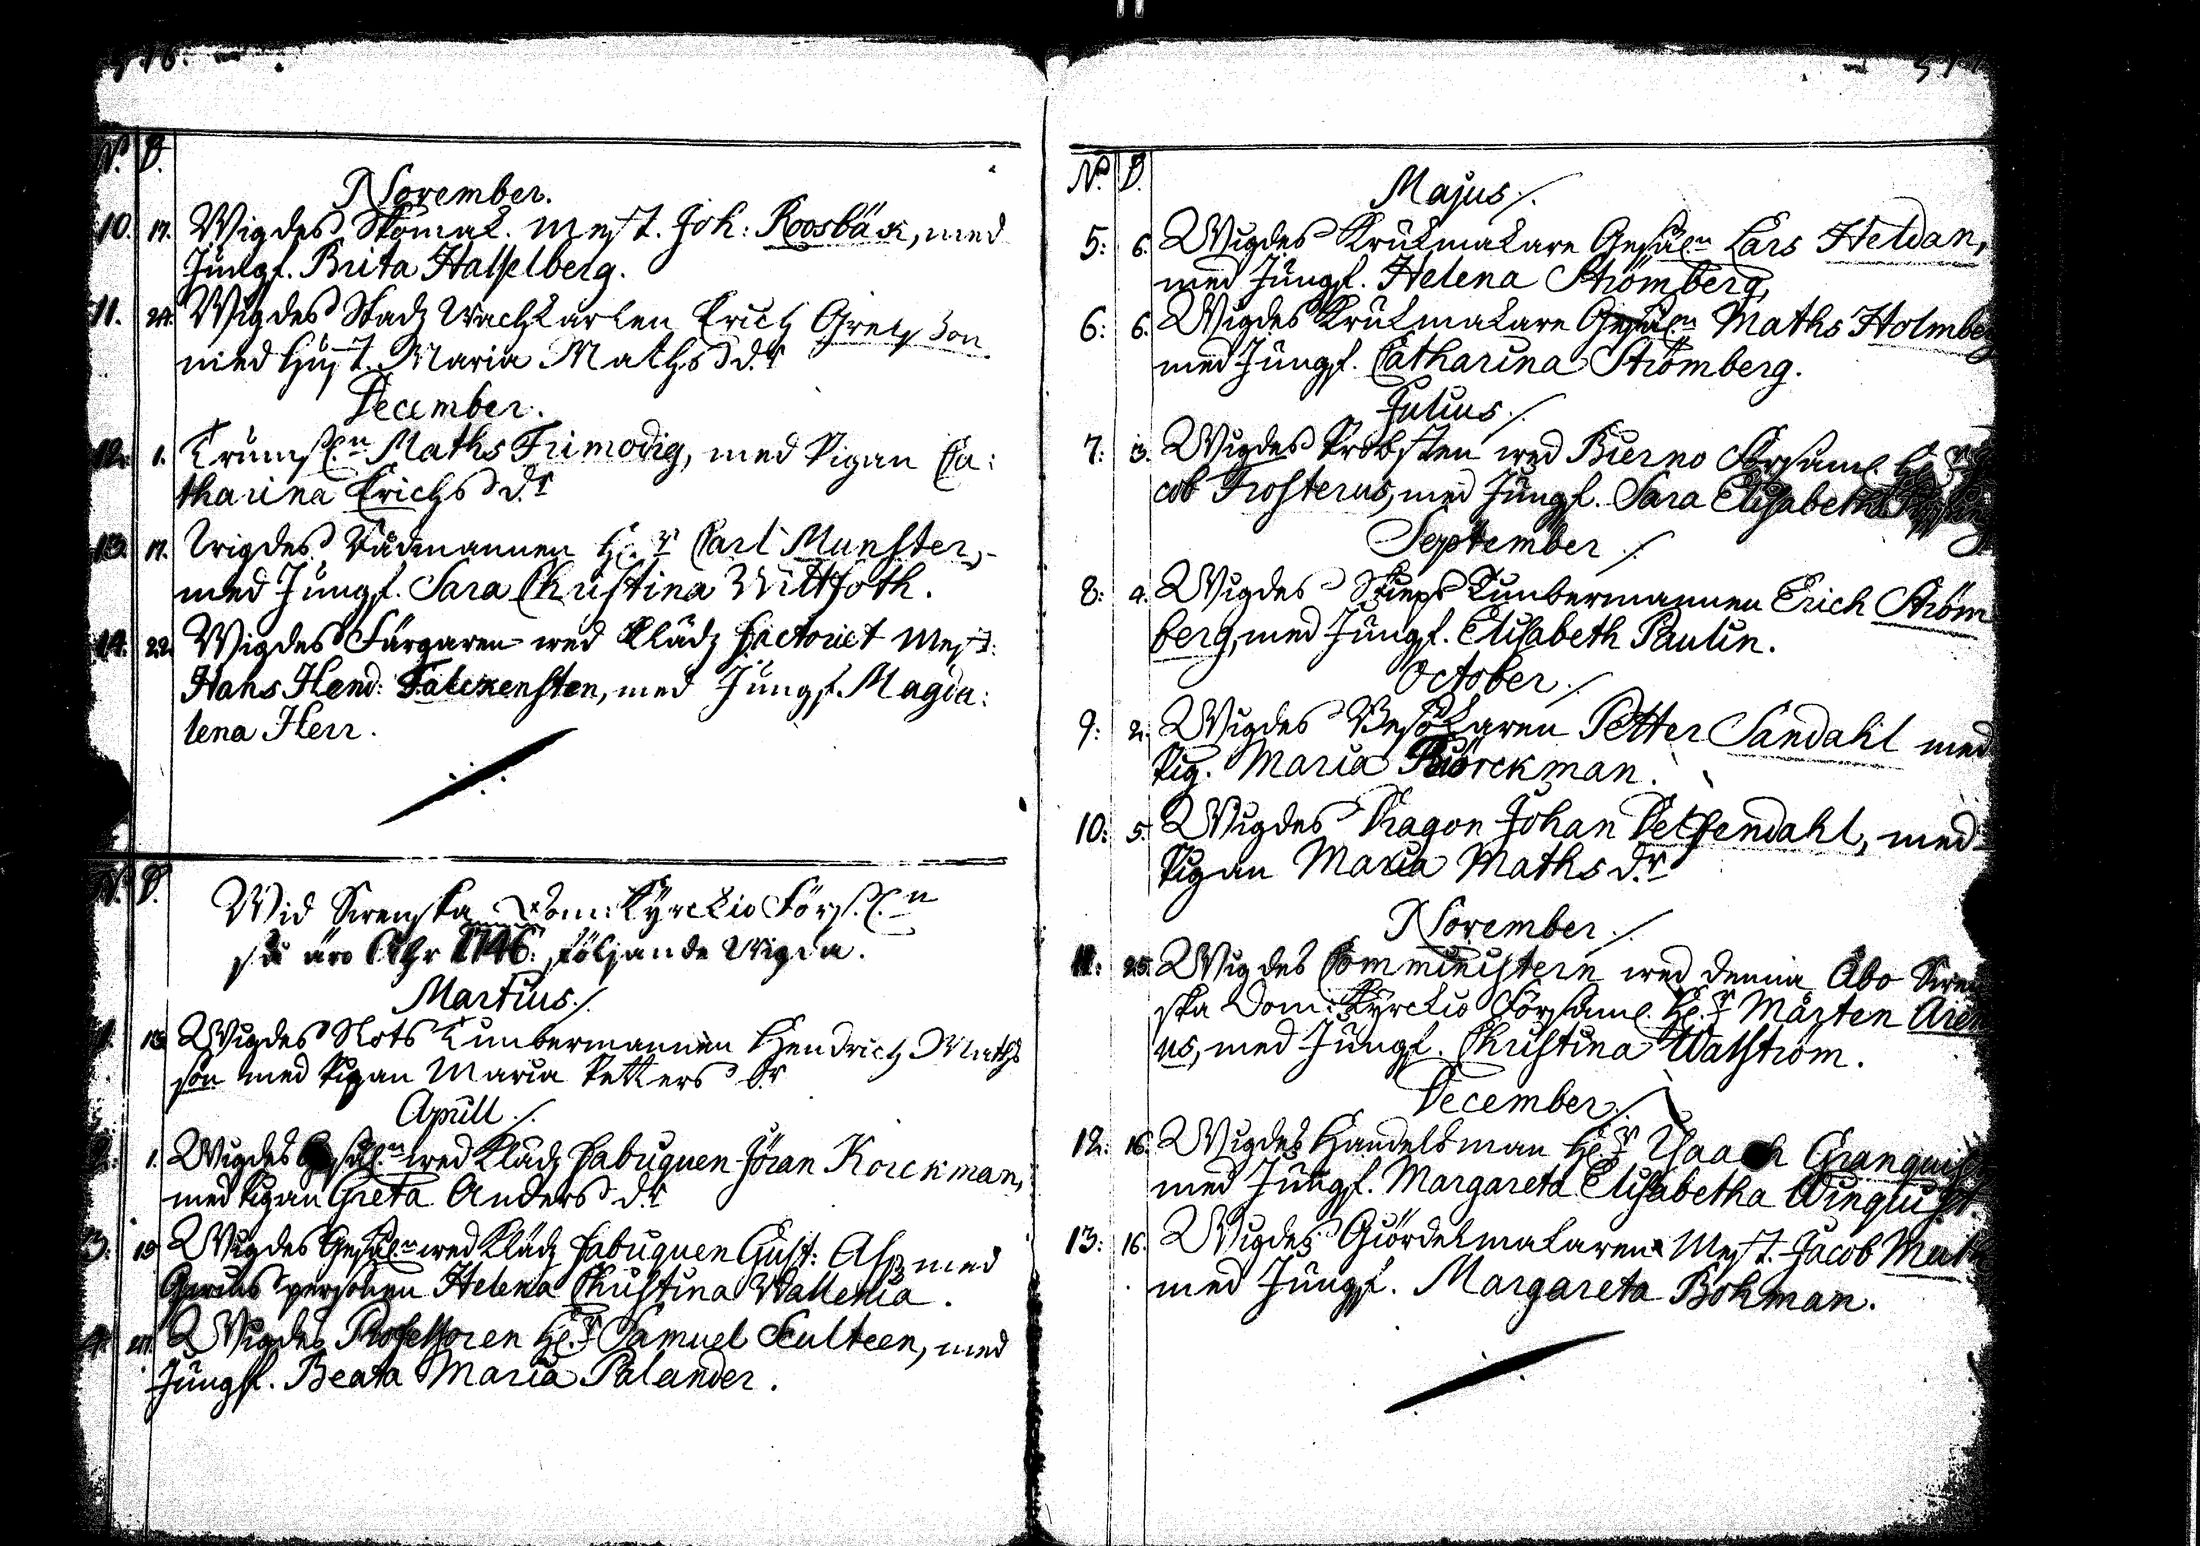 N.o D.
November.
10. 17. Wigdes Skomak. Mest. Joh: Roosbäck, med
Jungf. Brita Hasselberg.
11. 24. Wigdes Stadz Wachtkarlen Erich Grelsson
med Hust. Maria Mathsd.r
December.
12. 1. Trumsl.n Maths Frimodig, med Pigan Ca:
tharina Erichsd.r
13. 17. Wigdes Rådmannen H.r Carl Munster,
med Jungf. Sara Christina Wittfoth.
14. 22. Wigdes Färgaren wed Klädz Factoriet Mest:
Hans Hend: Falckensten, med Jungf. Magda:
lena Herr.
N.o D.
Wid Swenska Dom: Kyrckio Förs.l.n
äro Åhr 1746. följande Wigda.
Martius./.
1. 13. Wigdes Slots Timbermannen Hendrich Maths
son med Pigan Maria Petters D.r
Aprill./.
2. 1. Wigdes Gesäl.n wed Klädz Fabriquen Jöran Korckman,
med Pigan Greta Andersd.r
3. 19. Wigdes Gesäl.n wed Klädz Fabriquen Gust: Alss med
personen Helena Christina Wallenia.
4. Wigdes Professoren H.r Samuel Sculteen, med
Jungf. Beata Maria Palander.
N.o D.
Majus./.
5: 6. Wigdes Krukmakare Gesäl.n Lars Heldan,
med Jungf. Helena Strömberg,
6: 6. Wigdes Krukmakare Gesäl.n Maths Holmbe
med Jungf. Catharina Strömberg.
Julius./.
7: 3. Wigdes Probsten wed Bierno Församl. H.r
cob Frosterus, med Jungf. Sara Elisabeth
September./.
8: 4. Wigdes Skieps Timbermannen Erich Ström
berg, med Jungf. Elisabeth Paulin.
October./.
9: 2. Wigdes Besökaren Petter Sandahl med
Pig. Maria Biörckman.
10: 5. Wigdes Dragon Johan Detsendahl, med
Pigan Maria Mathsd.r
November./.
11: 25. Wigdes Comministern wed denna Åbo Swen
ska Dom: Kyrckio Församl. H.r Mårten
us, med Jungf. Christina Walström.
December./.
12: 16. Wigdes Handelsman H.r Isaach Granquist
med Jungf. Margareta Elisabetha Winquist.
13: 16. Wigdes Giördelmakaren Mest. Jacob
med Jungf. Margareta Bohman.